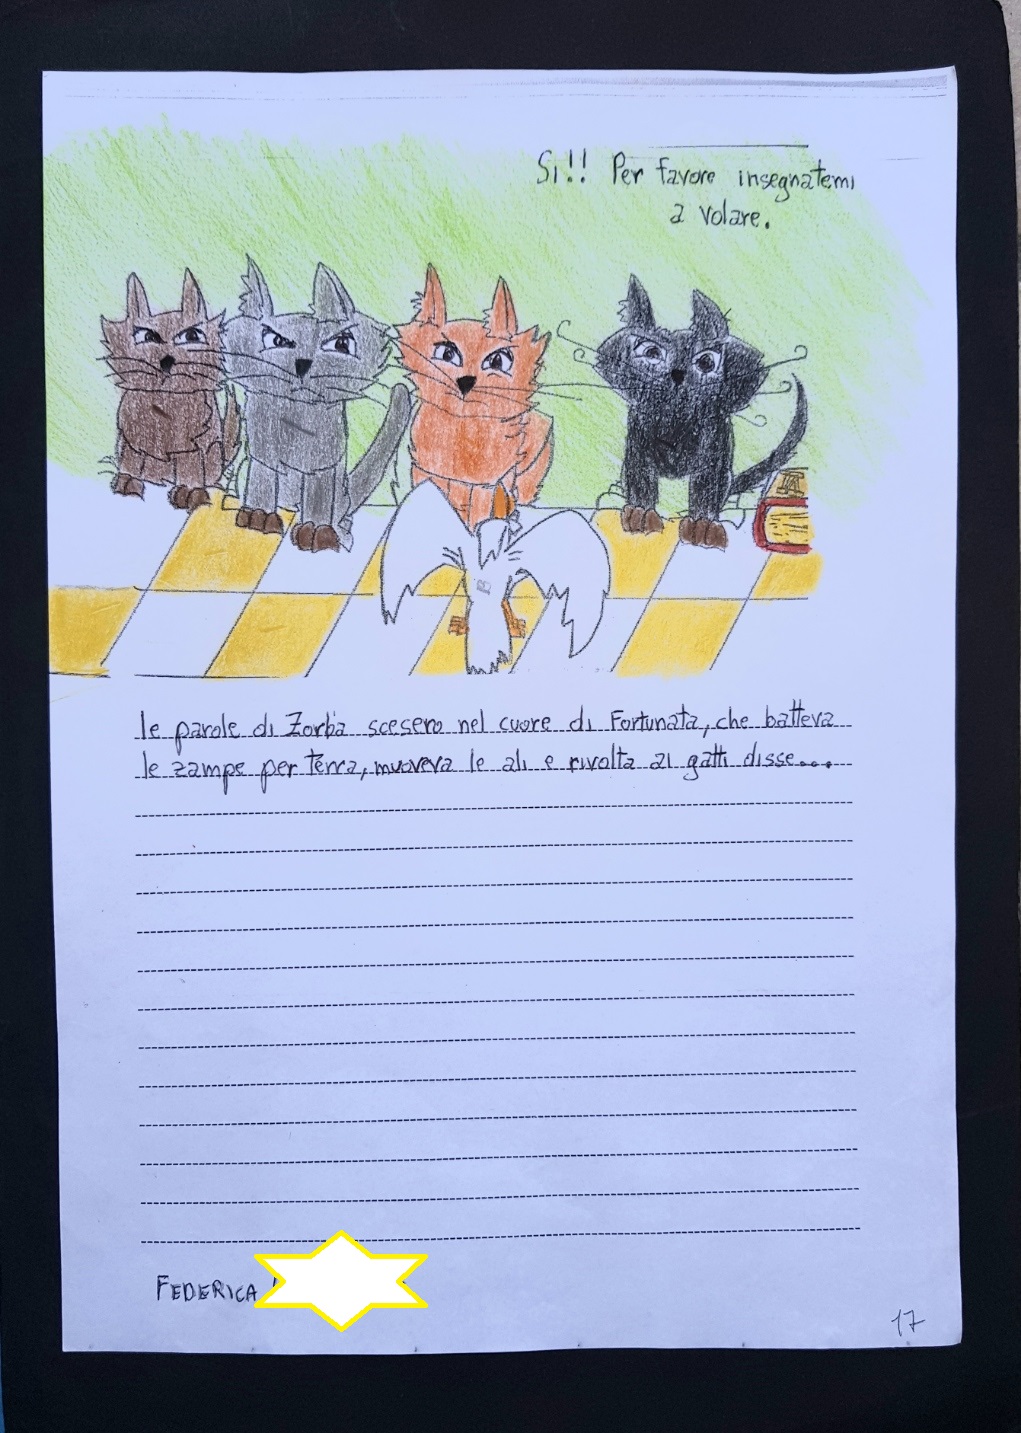 Si!! Per favore insegnatemi
a volare.
le parole di Zorba scesero nel cuore di Fortunata, che batteva
le zampe per terra, muoveva le ali e rivolta ai gatti disse...
FEDERICA
17